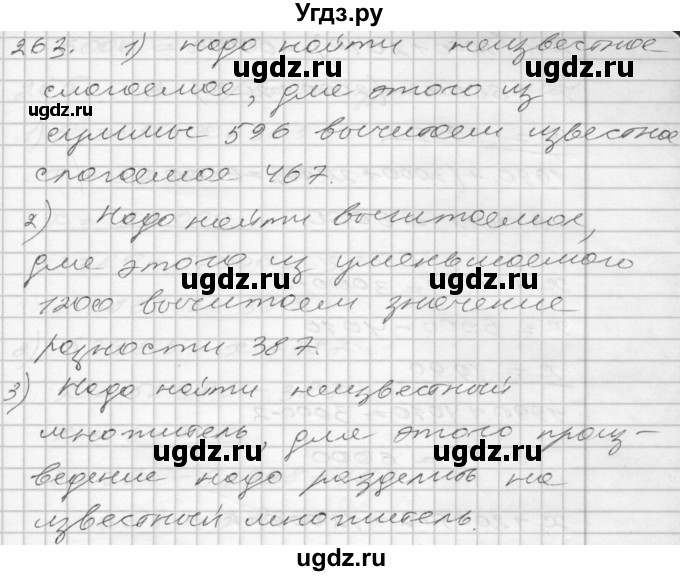 Угдз.ру
263. 1) надо найти неизвестное
слагаемое, для этого из
суммы 596 вычитаем известное
слагаемое 467.
2) Надо найти вычитаемое,
для этого из уменьшаемого
1200 вычитаем значение
разности 387.
3) Надо найти неизвестный
множитель, для этого произ-
ведение надо разделить на
известный множитель.
ugdz.ru
ugdz.ru
ugdz.ru
ugdz.ru
ugdz.ru
ugdz.ru
ugdz.ru
ugdz.ru
ugdz.ru
ugdz.ru
ugdz.ru
ugdz.ru